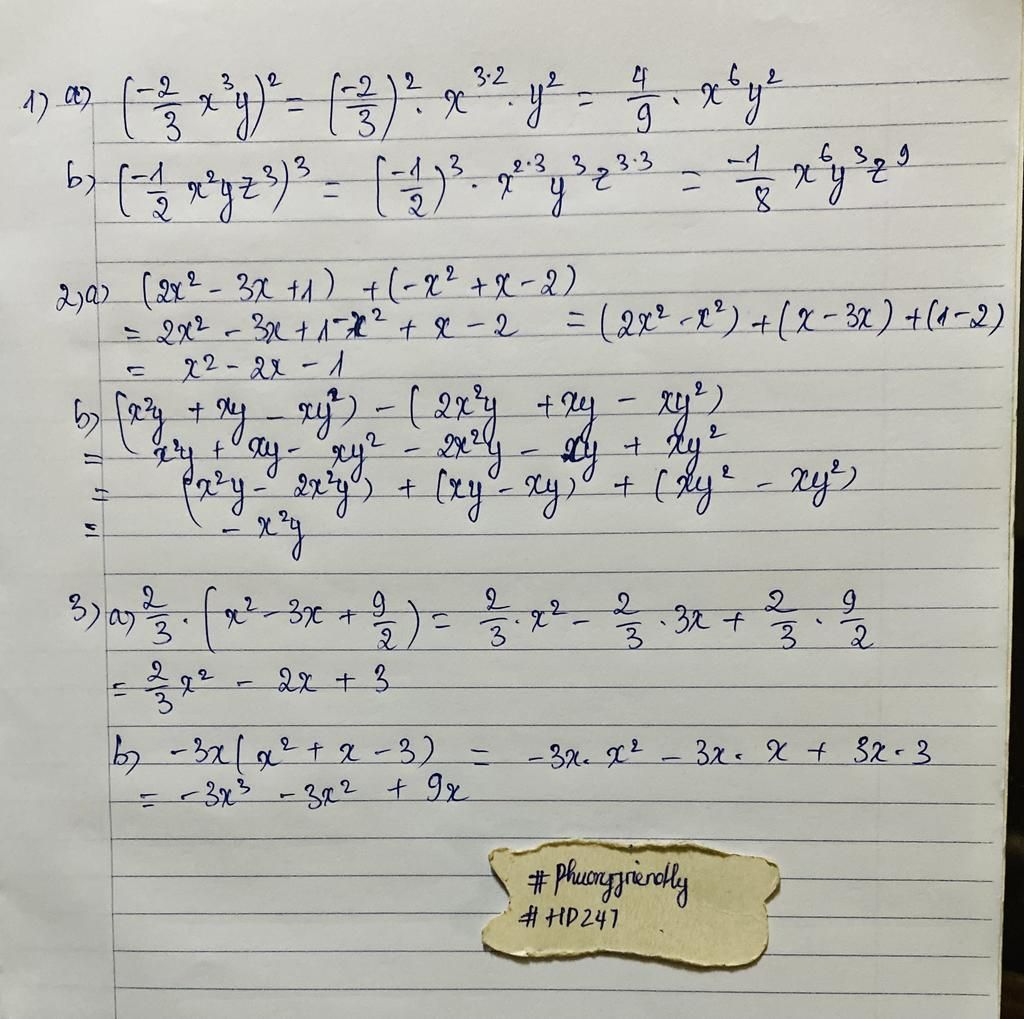 1) a) (-2/3 x³y)² = (-2/3)² . x³·² . y² = 4/9 . x⁶y²
b) (-1/2 x²yz³)³ = (-1/2)³ . x²·³y³z³·³ = -1/8 x⁶y³z⁹
2) a) (2x² - 3x + 1) + (-x² + x - 2)
= 2x² - 3x + 1 - x² + x - 2 = (2x² - x²) + (x - 3x) + (1 - 2)
= x² - 2x - 1
b) (x²y + xy - xy²) - (2x²y + xy - xy²)
= x²y + xy - xy² - 2x²y - xy + xy²
= (x²y - 2x²y) + (xy - xy) + (xy² - xy²)
= - x²y
3) a) 2/3 . (x² - 3x + 9/2) = 2/3 . x² - 2/3 . 3x + 2/3 . 9/2
= 2/3 x² - 2x + 3
b) -3x(x² + x - 3) = -3x . x² - 3x . x + 3x . 3
= -3x³ - 3x² + 9x
# Phuongfriendly
# HD247